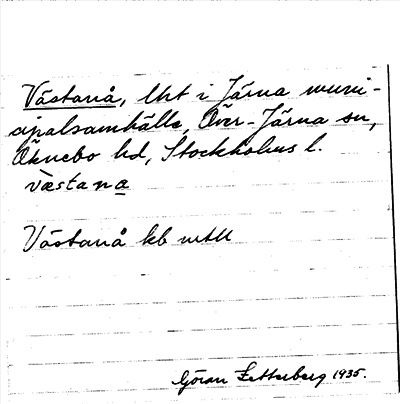 Västanå, lht i Järna muni-
cipalsamhälle, Över-Järna sn,
Öknebo hd, Stockholms l.
væstana
Västanå kb mtll
Göran Zetterberg 1935.